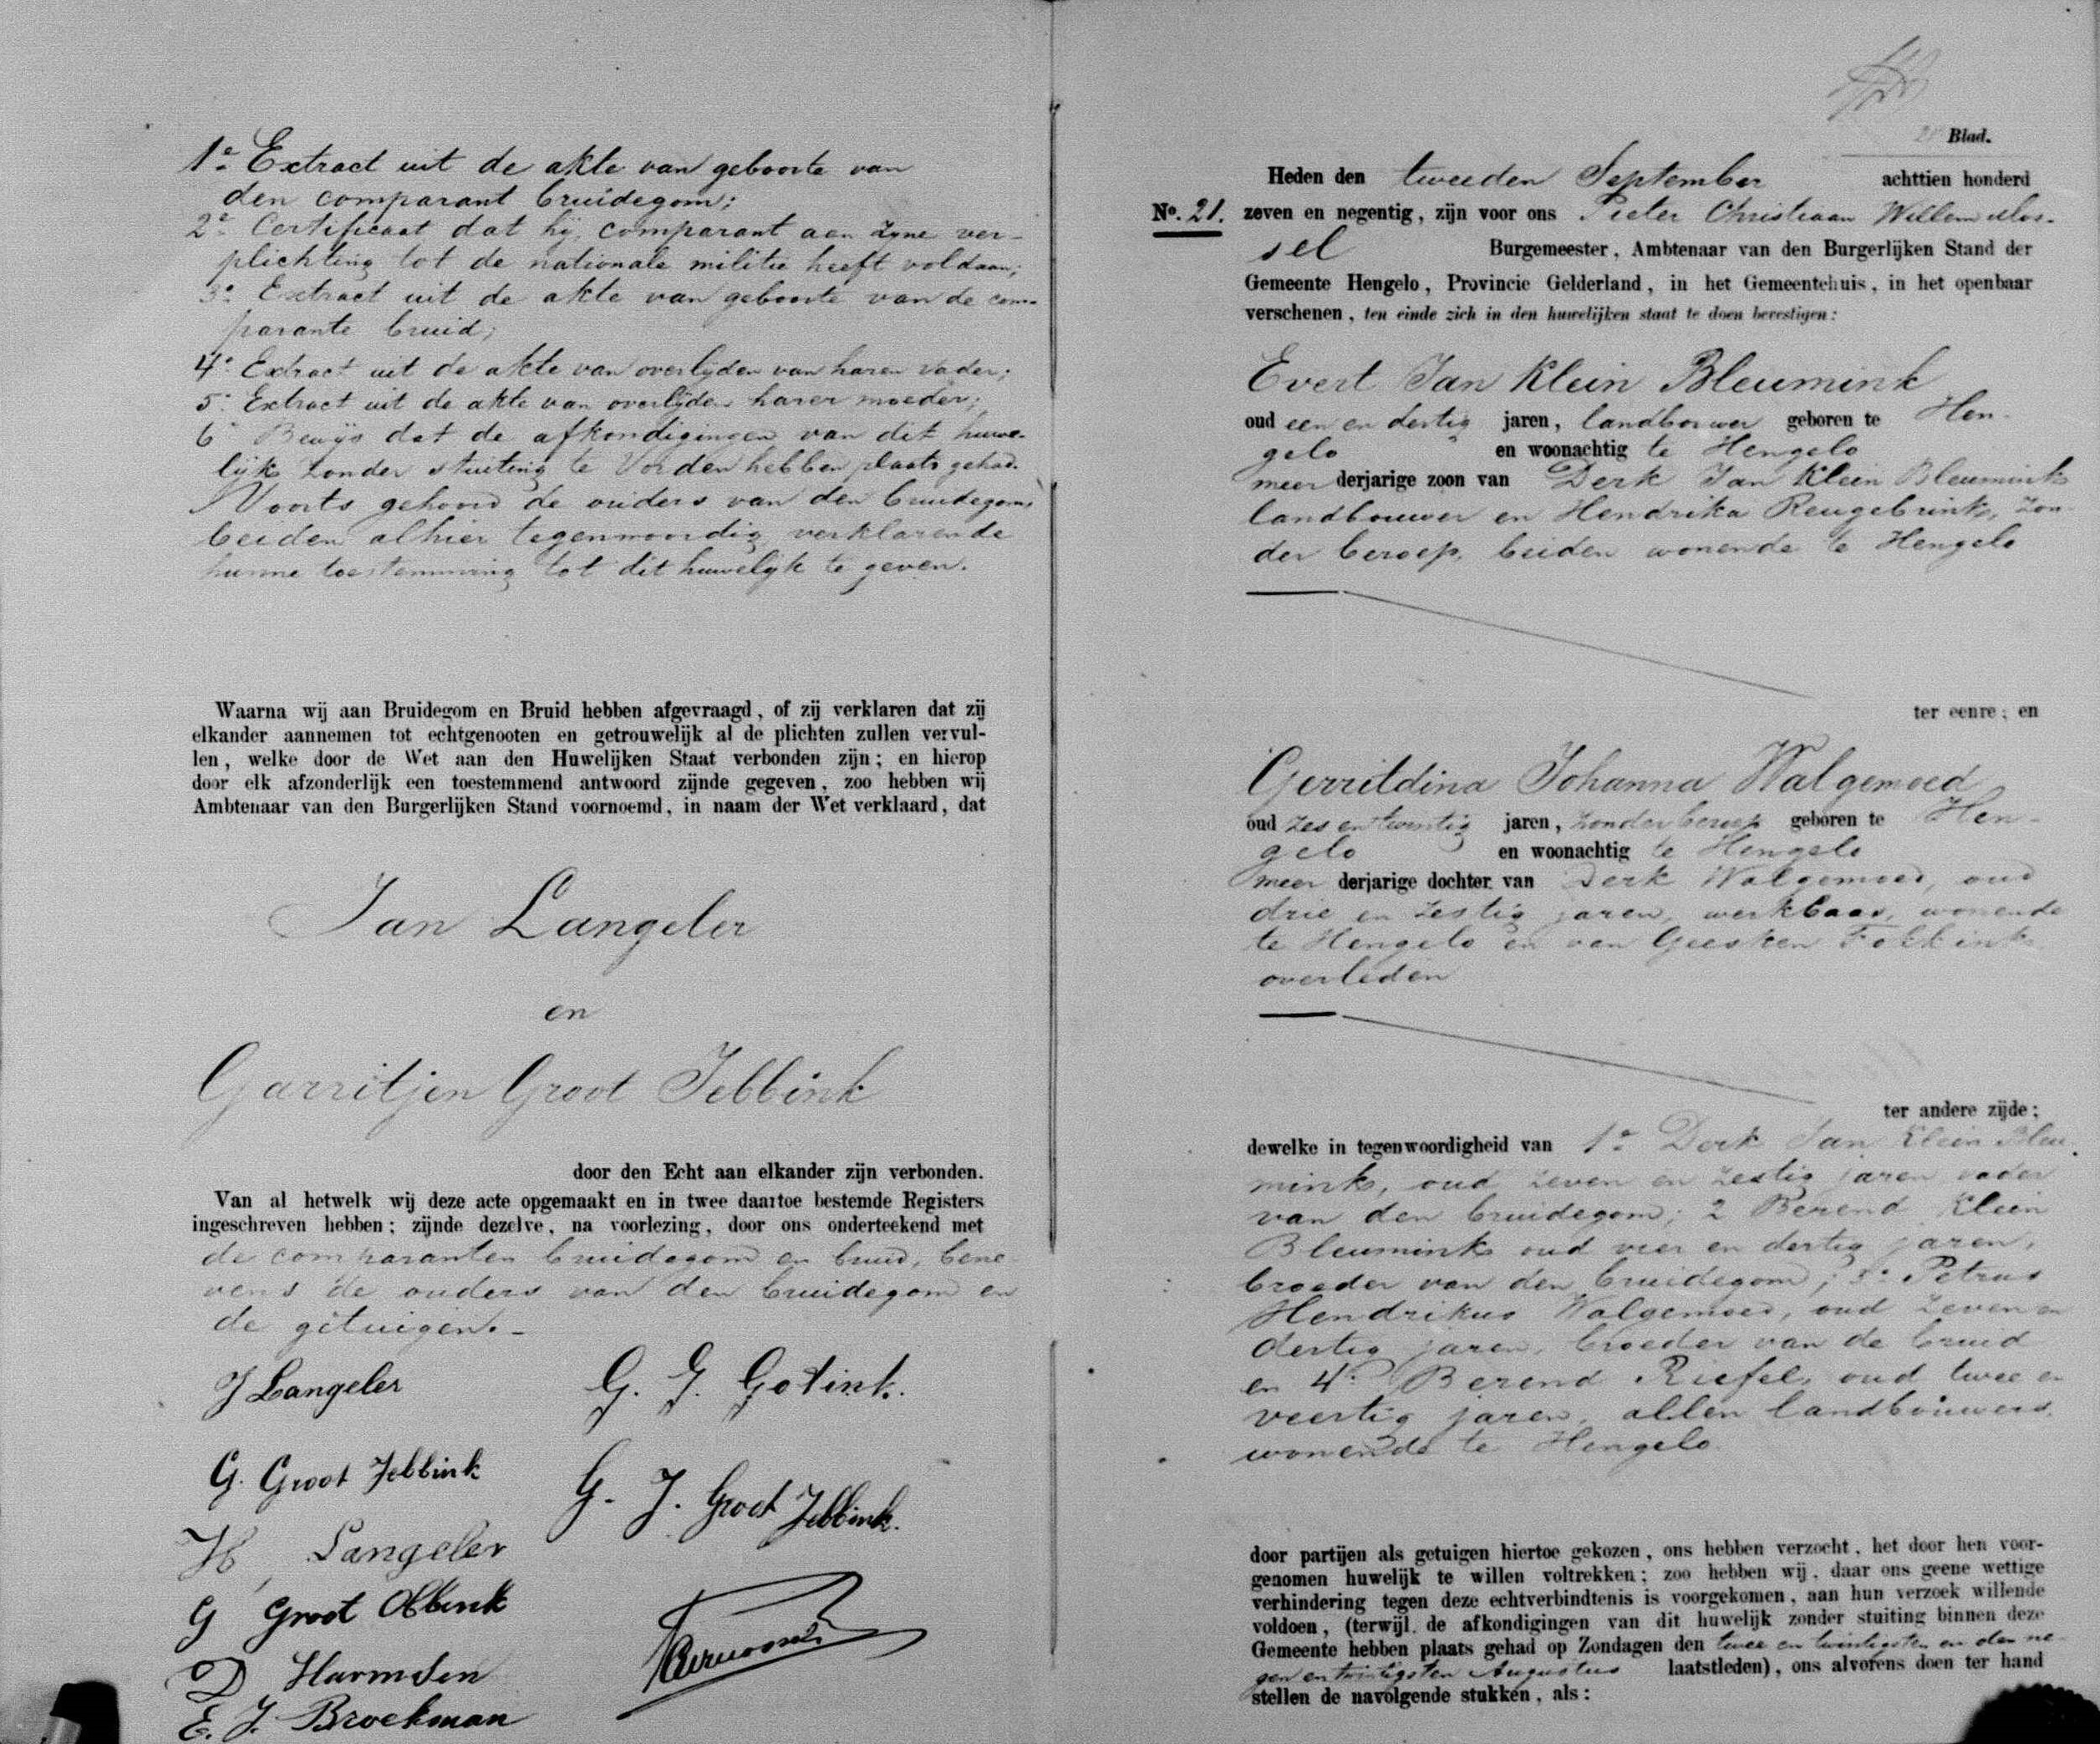 1e Extract uit de akte van geboorte van
den comparant bruidegom;
2e Certificaat dat hij, comparant aan zyne ver-
plichting tot de nationale militie heeft voldaan;
3e Extract uit de akte van geboorte van de com-
parante bruid;
4e Extract uit de akte van overlijden van haren vader;
5e Extract uit de akte van overlijden harer moeder;
6e Bewijs dat de afkondigingen van dit huwe-
lijk zonder stuiting te Vorden hebben plaats gehad.
Voorts gehoord de ouders van den bruidegom
beiden alhier tegenwoordig verklarende
hunne toestemming tot dit huwelijk te geven.
Waarna wij aan Bruidegom en Bruid hebben afgevraagd, of zij verklaren dat zij
elkander aannemen tot echtgenooten en getrouwelijk al de plichten zullen vervul-
len, welke door de Wet aan den Huwelijken Staat verbonden zijn; en hierop
door elk afzonderlijk een toestemmend antwoord zijnde gegeven, zoo hebben wij
Ambtenaar van den Burgerlijken Stand voornoemd, in naam der Wet verklaard, dat
Jan Langeler
en
Garritjen Groot Jebbink
door den Echt aan elkander zijn verbonden.
Van al hetwelk wij deze acte opgemaakt en in twee daartoe bestemde Registers
ingeschreven hebben; zijnde dezelve, na voorlezing, door ons onderteekend met
de comparanten bruidegom en bruid, bene-
vens de ouders van den bruidegom en
de getuigen.-
J Langeler
G. J. Gotink.
G. Groot Jebbink
G. J. Groot Jebbink.
H, Langeler
G Groot Obbink
D Harmsen
E. J. Broekman
Blad.
Heden den tweeden September achttien honderd
No. 21. zeven en negentig, zijn voor ons Pieter Christiaan Willem Mos-
sel Burgemeester, Ambtenaar van den Burgerlijken Stand der
Gemeente Hengelo, Provincie Gelderland, in het Gemeentehuis, in het openbaar
verschenen, ten einde zich in den huwelijken staat te doen bevestigen:
Evert Jan Klein Bleumink
oud een en dertig jaren, landbouwer geboren te Hen-
gelo en woonachtig te Hengelo
meer derjarige zoon van Derk Jan Klein Bleumink
landbouwer en Hendrika Reugebrink, zon-
der beroep, beiden wonende te Hengelo
ter eenre; en
Gerritdina Johanna Walgemoed
oud zes en twintig jaren, zonder beroep geboren te Hen-
gelo en woonachtig te Hengelo
meer derjarige dochter van Derk Walgemoed, oud
drie en zestig jaren, werkbaas, wonende
te Hengelo en van Geesken Fokkink
overleden
ter andere zijde;
dewelke in tegenwoordigheid van 1e Derk Jan Klein Bleu-
mink, oud zeven en zestig jaren vader
van den bruidegom; 2 Berend Klein
Bleumink oud vier en dertig jaren,
broeder van den bruidegom; 3e Petrus
Hendrikus Walgemoed, oud zeven en
dertig jaren, broeder van de bruid
en 4e Berend Riefel, oud twee en
veertig jaren, allen landbouwers,
wonende te Hengelo
door partijen als getuigen hiertoe gekozen, ons hebben verzocht, het door hen voor-
genomen huwelijk te willen voltrekken; zoo hebben wij, daar ons geene wettige
verhindering tegen deze echtverbindtenis is voorgekomen, aan hun verzoek willende
voldoen, (terwijl de afkondigingen van dit huwelijk zonder stuiting binnen deze
Gemeente hebben plaats gehad op Zondagen den twee en twintigsten en den ne-
gen en twintigsten Augustus laatstleden), ons alvorens doen ter hand
stellen de navolgende stukken, als: